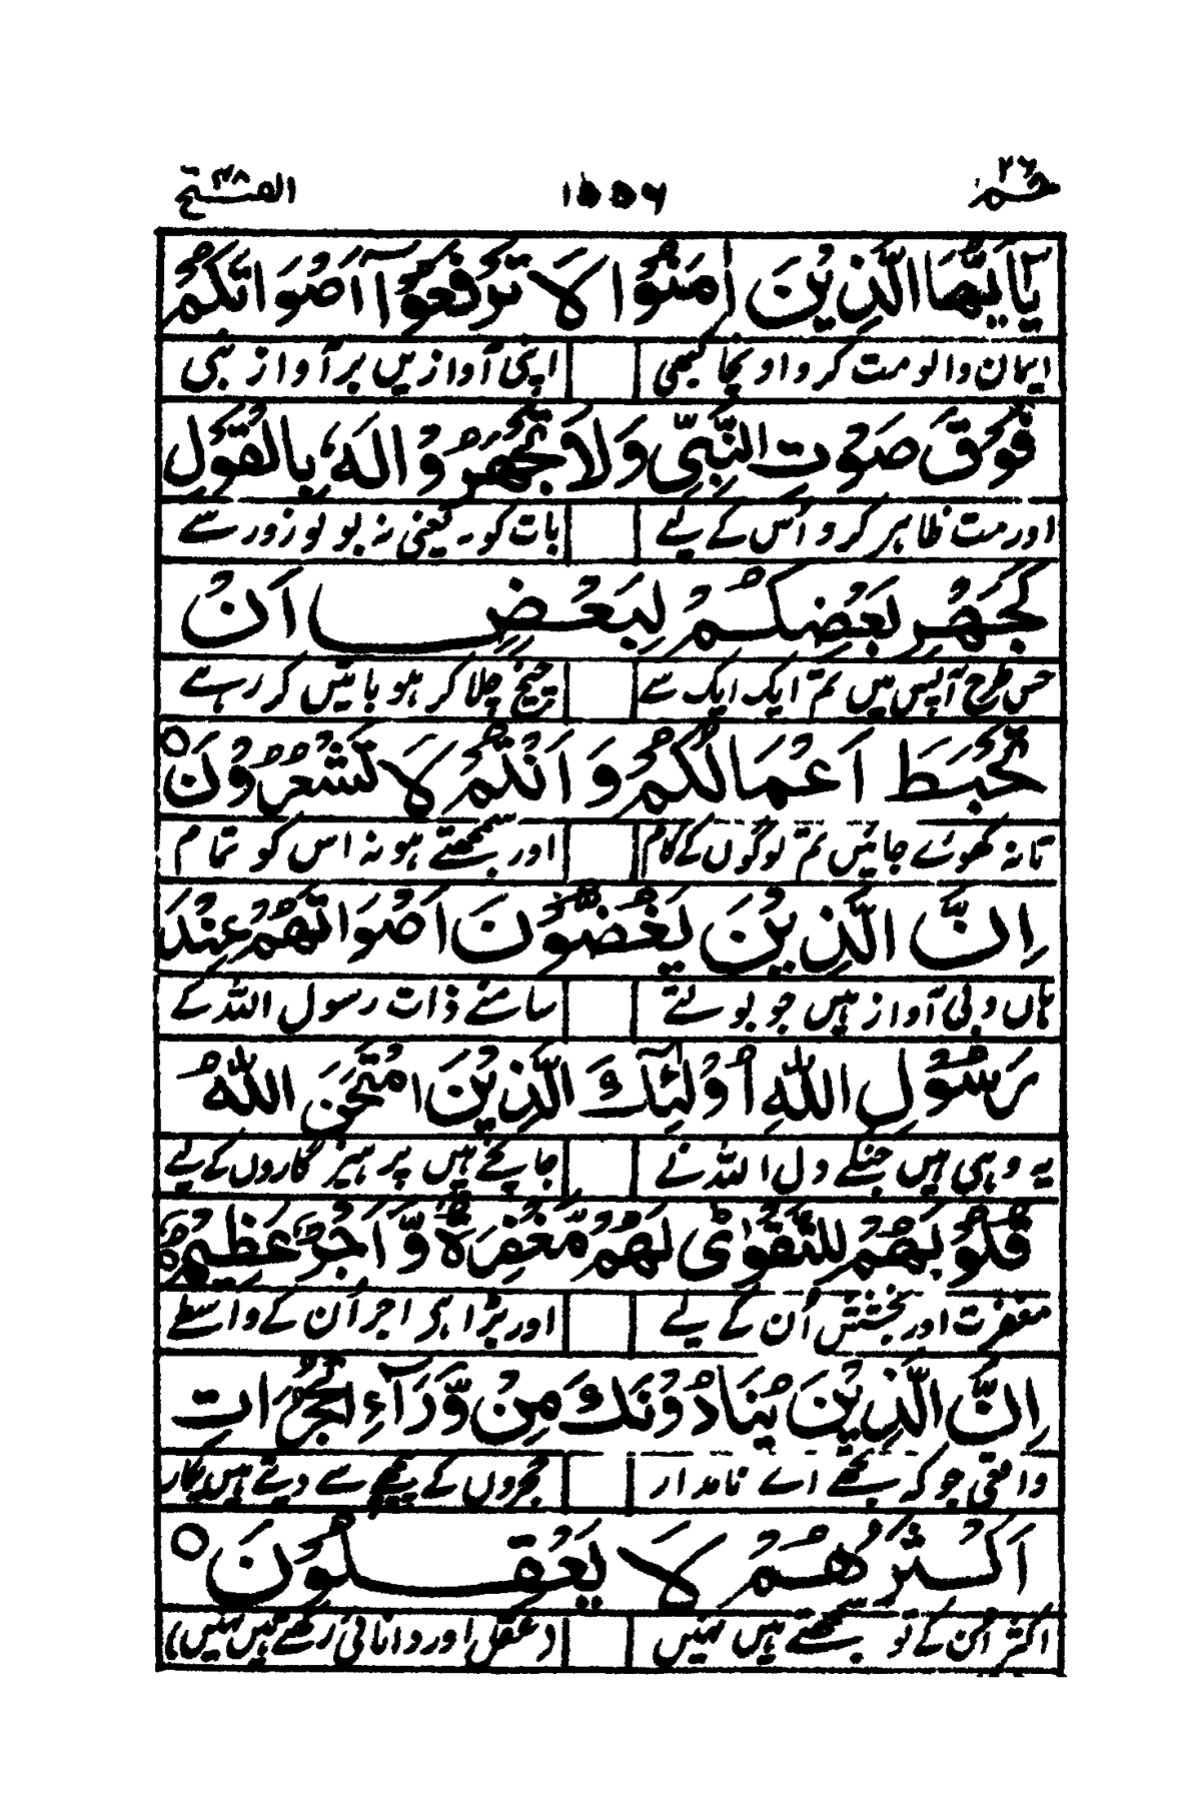 حٰمٓ ۲۶ ۱۵۵۶ الفتح ۴۸
يٰۤاَيُّهَا الَّذِيْنَ اٰمَنُوْا لَا تَرْفَعُوْۤا اَصْوَاتَكُمْ
ایمان والو مت کرو اونچا کبھی اپنی آوازیں بر آواز نبی
فَوْقَ صَوْتِ النَّبِيِّ وَلَا تَجْهَرُوْا لَهٗ بِالْقَوْلِ
اور مت ظاہر کرو اُس کے لیے بات کو۔ یعنی نہ بولو زور سے
كَجَهْرِ بَعْضِكُمْ لِبَعْضٍ اَنْ
جس طرح آپس میں تم ایک ایک سے چیخ چلا کر ہو باتیں کر رہے
تَحْبَطَ اَعْمَالُكُمْ وَاَنْتُمْ لَا تَشْعُرُوْنَ ○
تا نہ کھوئے جائیں تم لوگوں کے کام اور سمجھتے ہو نہ اس کو تمام
اِنَّ الَّذِيْنَ يَغُضُّوْنَ اَصْوَاتَهُمْ عِنْدَ
ہاں دبی آواز ہیں جو بولتے سامنے ذات رسول اللہ کے
رَسُوْلِ اللّٰهِ اُولٰٓئِكَ الَّذِيْنَ امْتَحَنَ اللّٰهُ
یہ وہی ہیں جنکے دل اللہ نے جانچے ہیں پرہیزگاروں کے لیے
قُلُوْبَهُمْ لِلتَّقْوٰى لَهُمْ مَّغْفِرَةٌ وَّاَجْرٌ عَظِيْمٌ ○
مغفرت اور بخشش اُن کے لیے اور بڑا ہی اجر اُن کے واسطے
اِنَّ الَّذِيْنَ يُنَادُوْنَكَ مِنْ وَّرَآءِ الْحُجُرَاتِ
واقعی جو کہ تجھے اے نامدار حجروں کے پیچھے سے دیتے ہیں پکار
اَكْثَرُهُمْ لَا يَعْقِلُوْنَ ○
اکثر اُن کے تو سمجھتے ہیں نہیں (عقل اور دانائی رکھتے ہیں نہیں)